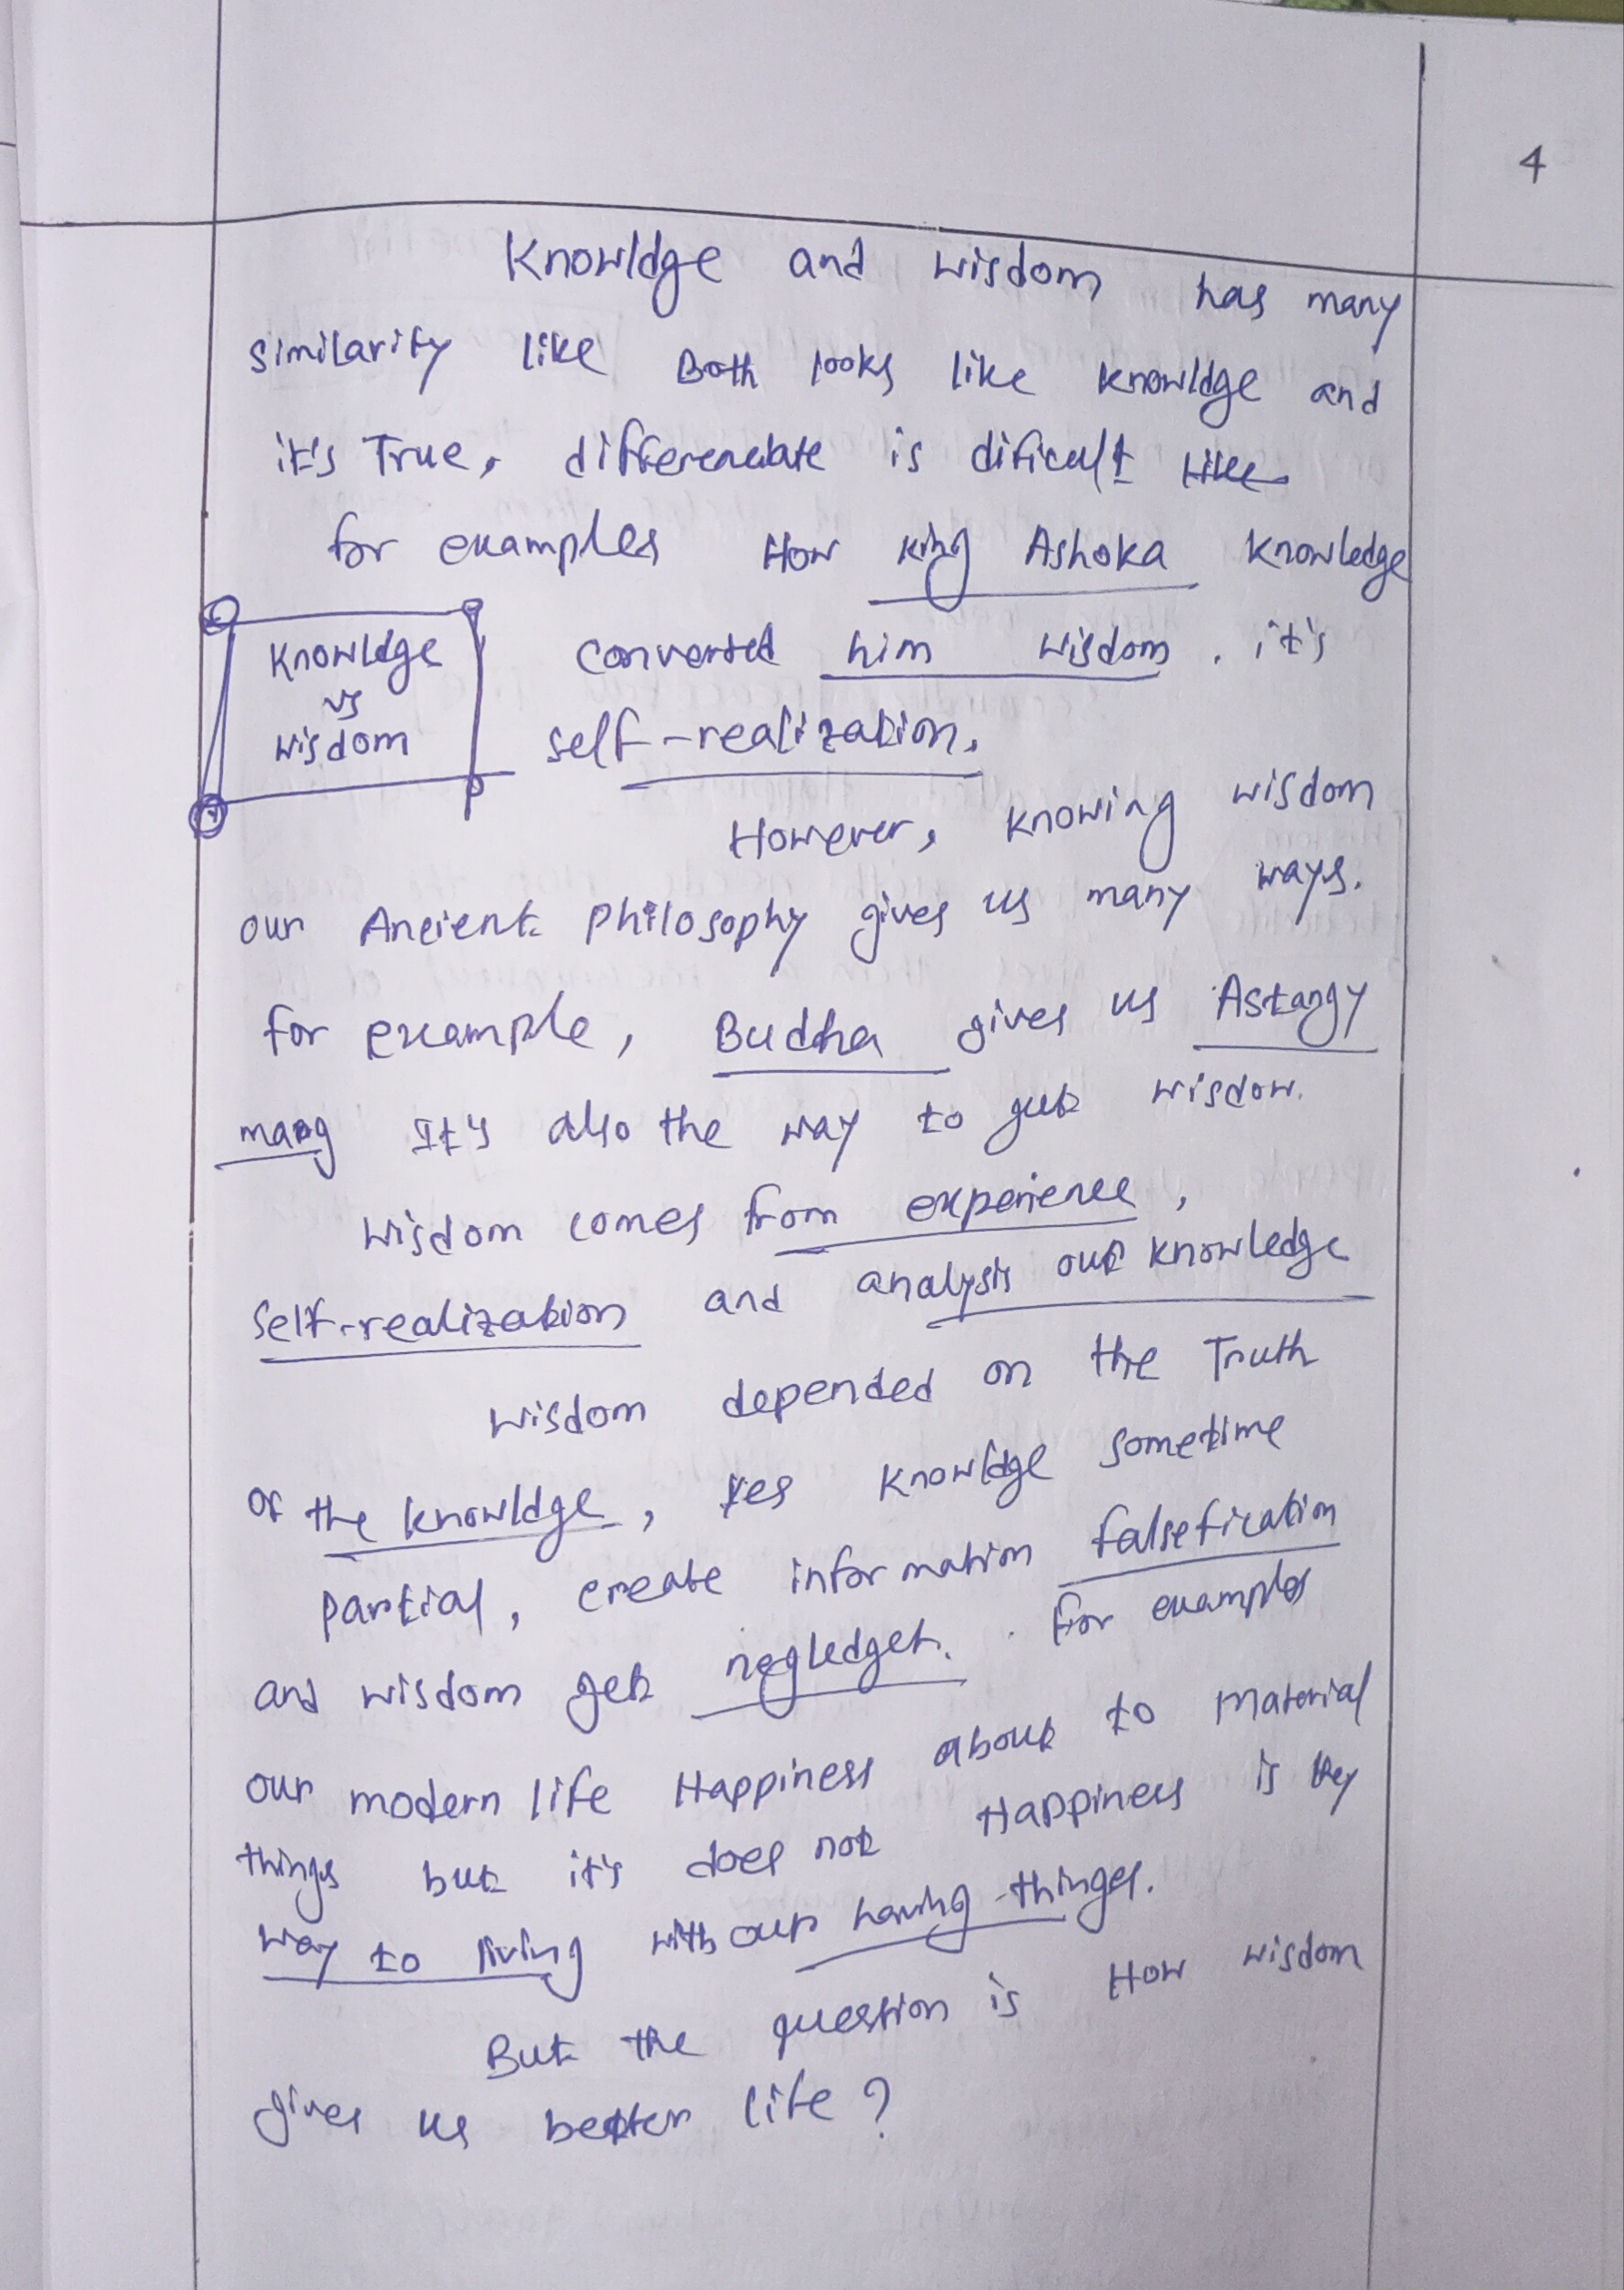 4
Knowldge and wisdom has many
similarity like Both looks like knowldge and
it's True, differenciate is dificult like
for examples How king Ashoka knowledge
converted him wisdom. it's
self-realization.
Knowldge
vs
wisdom
However, knowing wisdom
our Ancient philosophy gives us many ways.
for example, Budha gives us Astangy
marg It's also the way to get wisdom.
Wisdom comes from experience,
Self-realization and analysis our knowledge
Wisdom depended on the Truth
of the knowldge, yes knowldge sometime
partial, create information falsefication
and wisdom get negledget. For examples
our modern life Happiness about to material
things but it's does not Happiness is the
way to living without having things.
But the question is How wisdom
gives us better life?